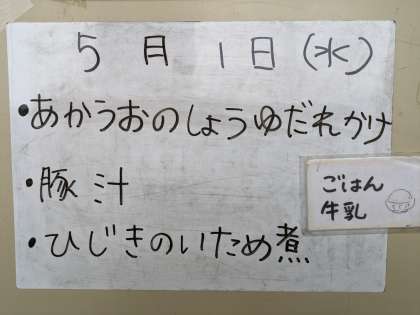 5月1日(水)
・あかうおのしょうゆだれかけ
・豚汁
・ひじきのいため煮
ごはん
牛乳